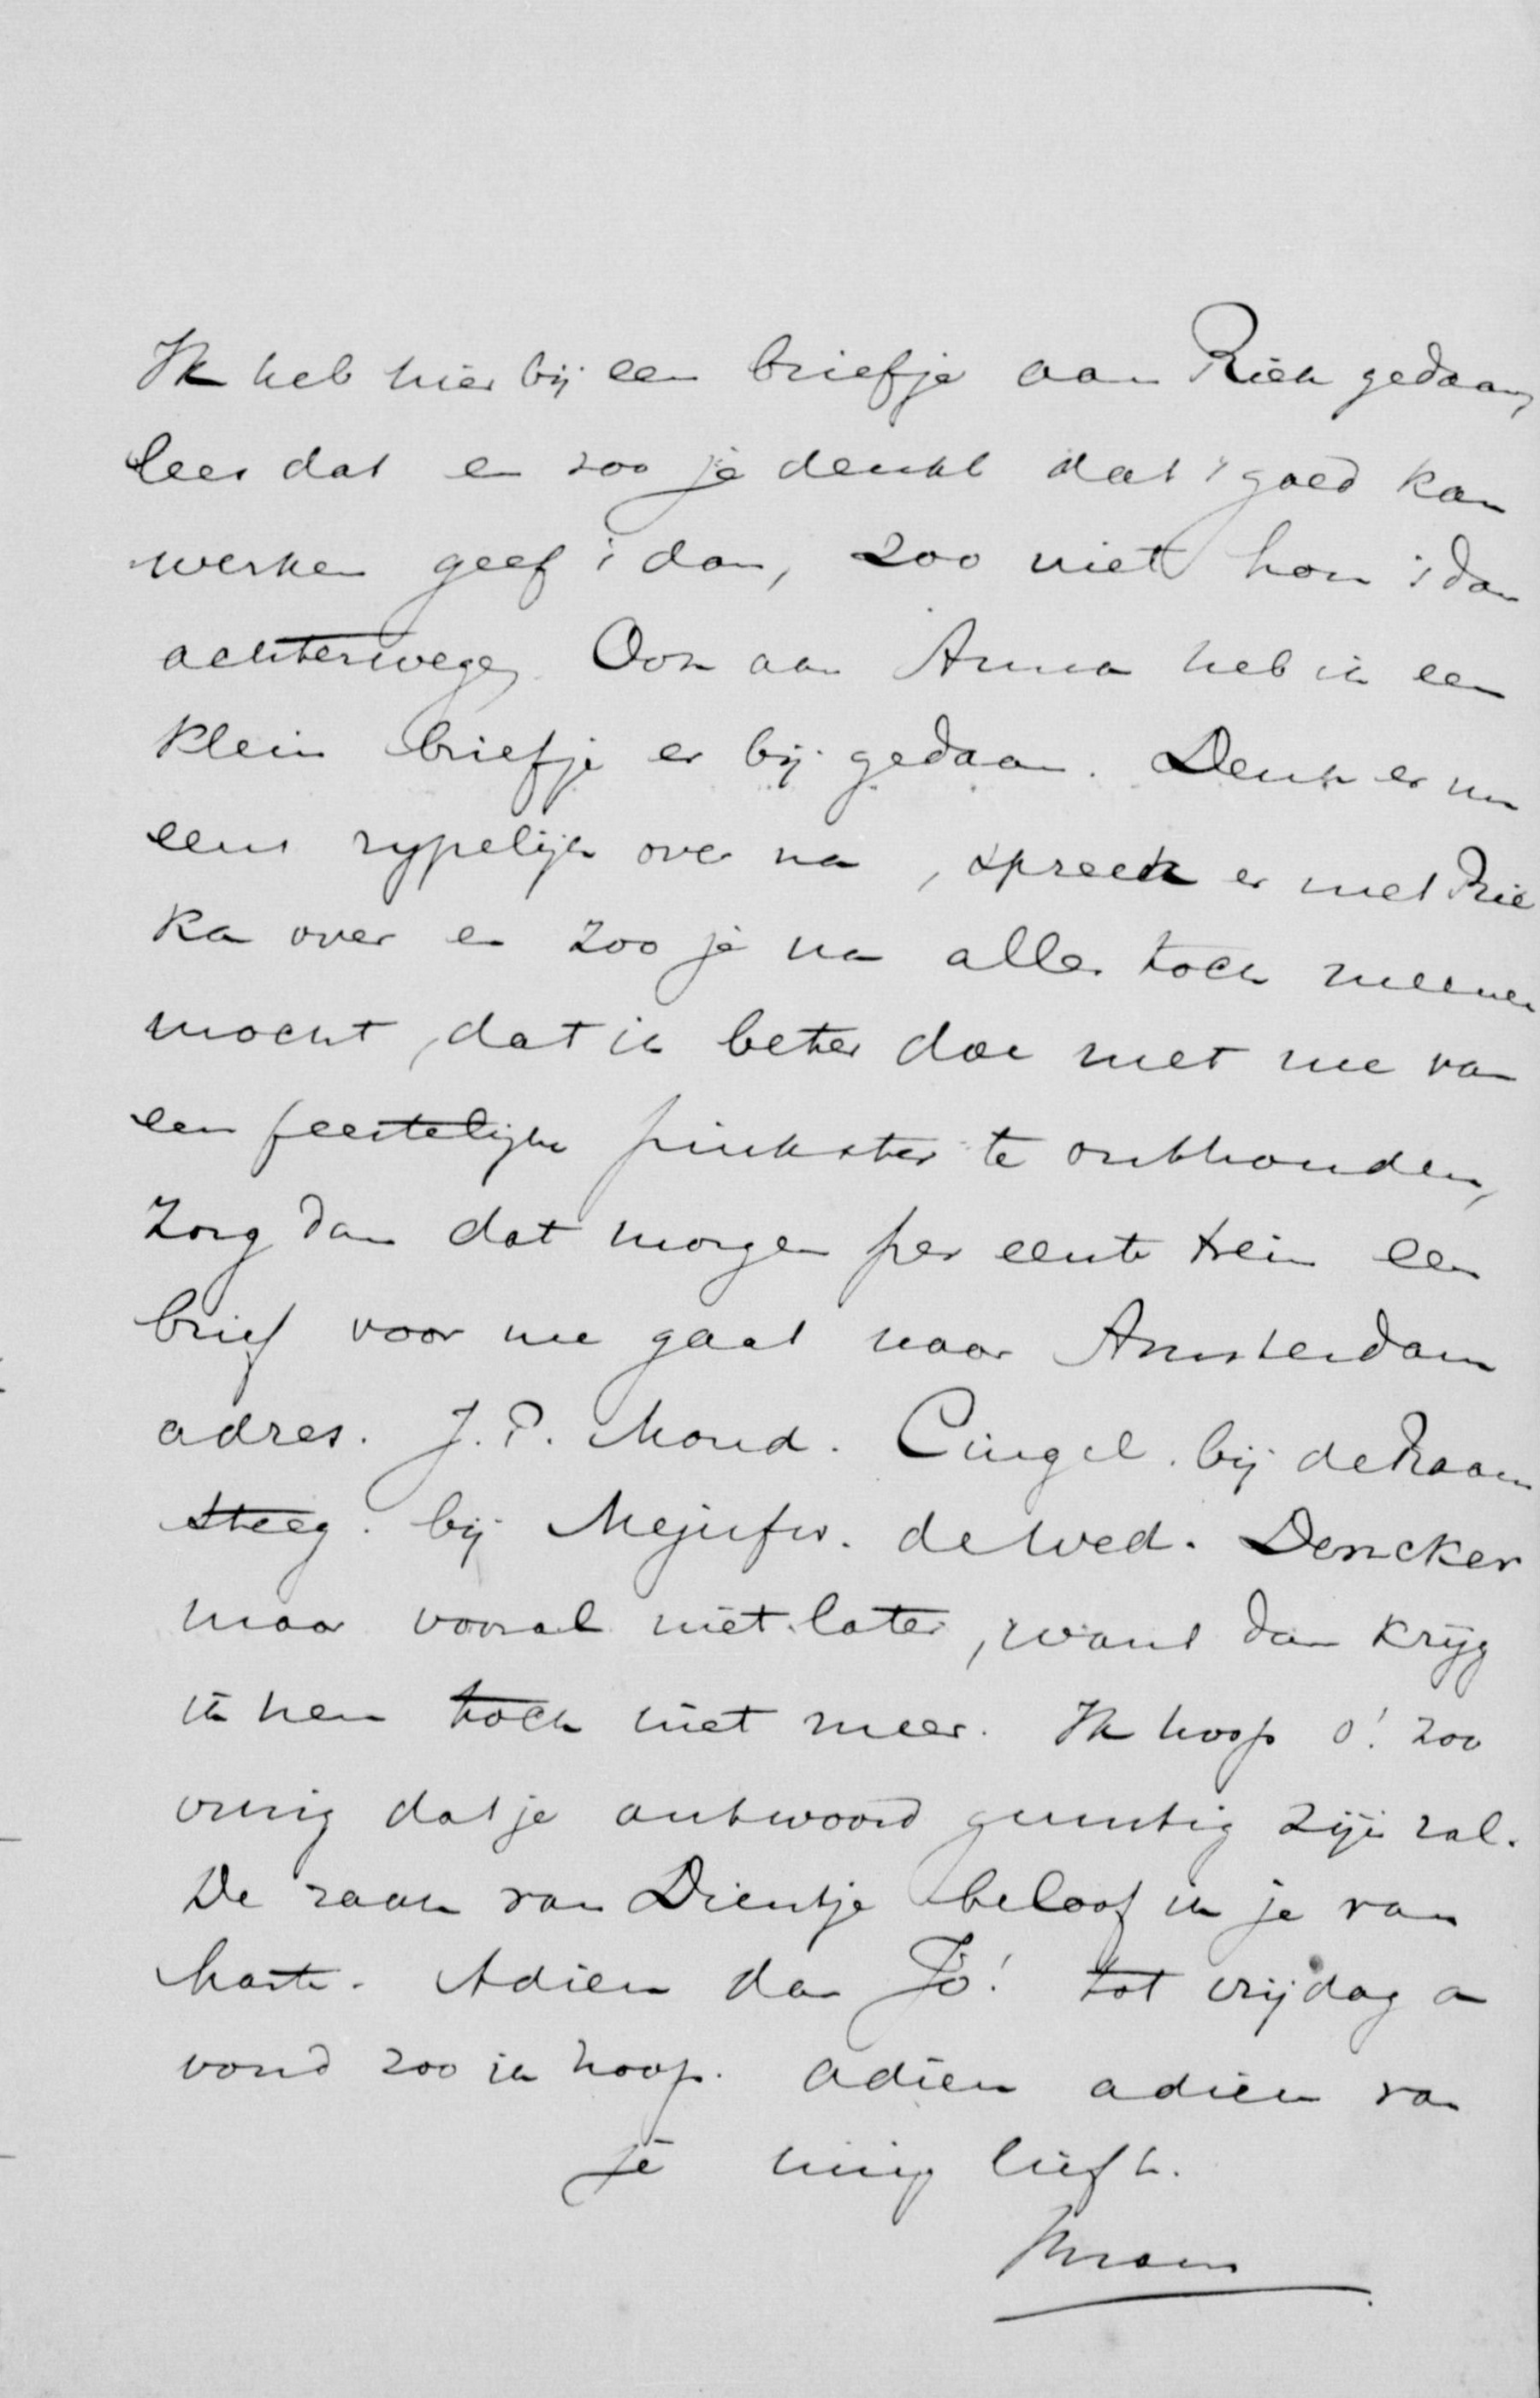 Ik heb hier bij een briefje aan Riek gedaan,
lees dat en zoo je denkt dat 't goed kan
werken geef 't dan, zoo niet hou 't dan
achterwege. Ook aan Anna heb ik een
klein briefje er bij gedaan. Denk er nu
eens rypelijk over na, spreek er met Rie
ka over en zoo je na alles toch meenen
mocht, dat ik beter doe met me van
een feestelijke pinkster te onthouden,
zorg dan dat morgen per eerste trein een
brief voor me gaat naar Amsterdam
adres. J. P. Cingel. bij de Raam
steeg. bij Mejufvr. de Wed. Dencker
maar vooral niet later, want dan krijg
ik hem toch niet meer. Ik hoop o! zoo
vurig dat je antwoord gunstig zijn zal.
De zaak van Dientje beloof ik je van
harte. Adieu dan Jo! tot vrijdag a
vond zoo ik hoop. adieu adieu van
je innig liefh.